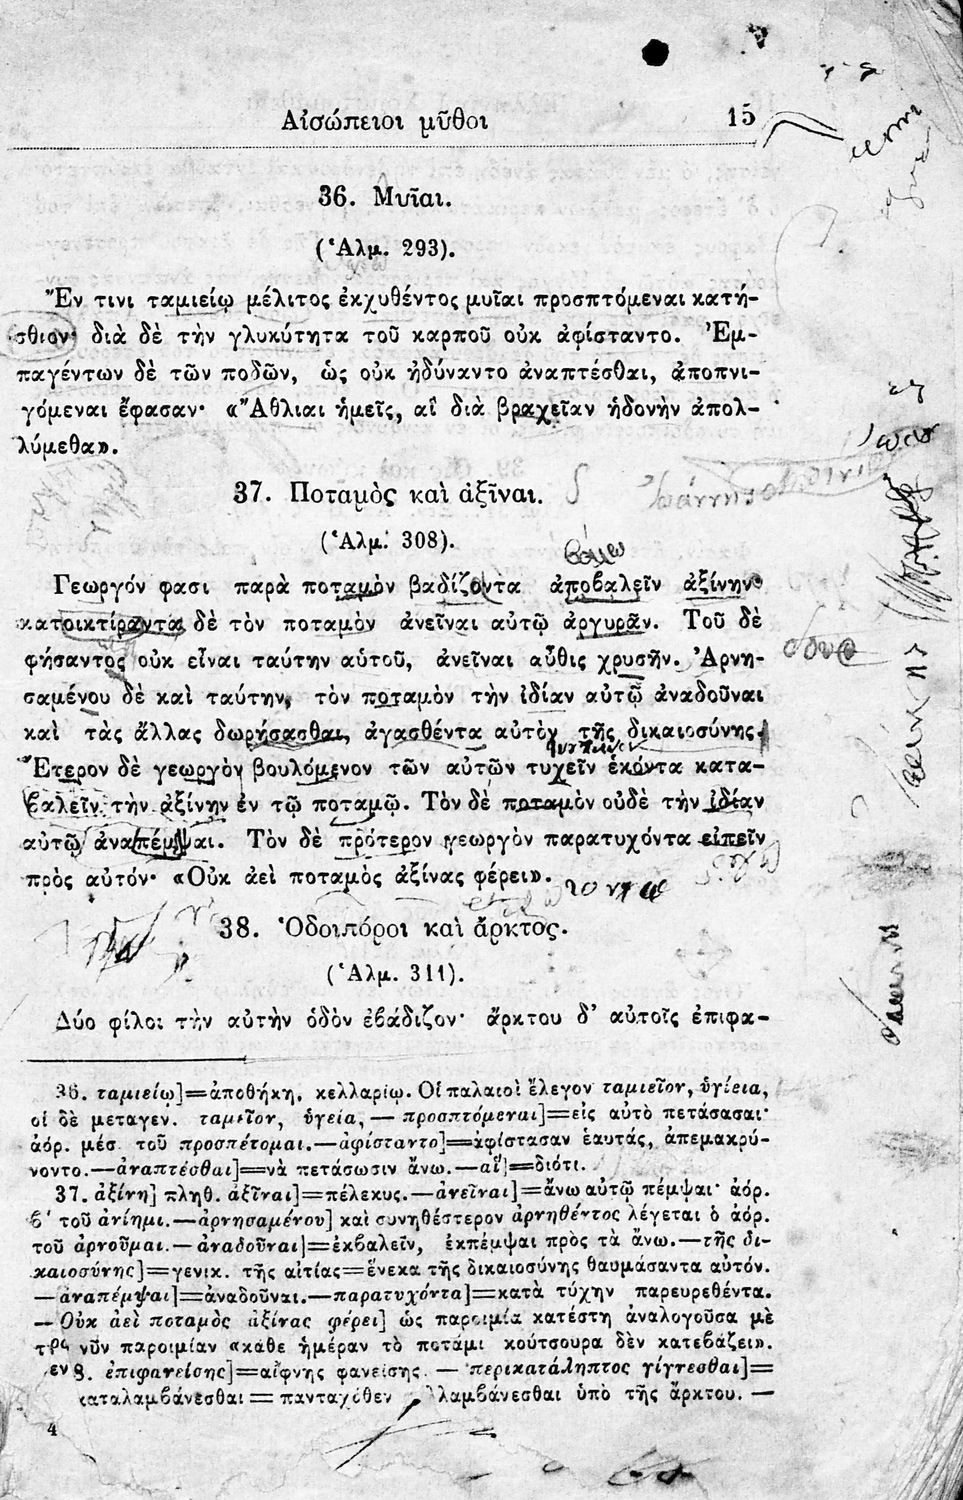 Αἰσώπειοι μῦθοι 15
36. Μυῖαι.
(Ἁλμ. 293).
Ἔν τινι ταμιείῳ μέλιτος ἐκχυθέντος μυῖαι προσπτόμεναι κατή-
σθιον· διὰ δὲ τὴν γλυκύτητα τοῦ καρποῦ οὐκ ἀφίσταντο. Ἐμ-
παγέντων δὲ τῶν ποδῶν, ὡς οὐκ ἠδύναντο ἀναπτέσθαι, ἀποπνι-
γόμεναι ἔφασαν· «Ἄθλιαι ἡμεῖς, αἳ διὰ βραχεῖαν ἡδονὴν ἀπολ-
λύμεθα».
37. Ποταμὸς καὶ ἀξῖναι.
(Ἁλμ. 308).
Γεωργόν φασι παρὰ ποταμὸν βαδίζοντα ἀποβαλεῖν ἀξίνην
κατοικτίραντα δὲ τὸν ποταμὸν ἀνεῖναι αὐτῷ ἀργυρᾶν. Τοῦ δὲ
φήσαντος οὐκ εἶναι ταύτην αὑτοῦ, ἀνεῖναι αὖθις χρυσῆν. Ἀρνη-
σαμένου δὲ καὶ ταύτην, τὸν ποταμὸν τὴν ἰδίαν αὐτῷ ἀναδοῦναι
καὶ τὰς ἄλλας δωρήσασθαι, ἀγασθέντα αὐτὸν τῆς δικαιοσύνης.
Ἕτερον δὲ γεωργὸν βουλόμενον τῶν αὐτῶν τυχεῖν ἑκόντα κατα-
βαλεῖν τὴν ἀξίνην ἐν τῷ ποταμῷ. Τὸν δὲ ποταμὸν οὐδὲ τὴν ἰδίαν
αὐτῷ ἀναπέμψαι. Τὸν δὲ πρότερον γεωργὸν παρατυχόντα εἰπεῖν
πρὸς αὐτόν· «Οὐκ ἀεὶ ποταμὸς ἀξίνας φέρει».
38. Ὁδοιπόροι καὶ ἄρκτος.
(Ἁλμ. 311).
Δύο φίλοι τὴν αὐτὴν ὁδὸν ἐβάδιζον· ἄρκτου δ' αὐτοῖς ἐπιφα-
36. ταμιείῳ]=ἀποθήκῃ, κελλαρίῳ. Οἱ παλαιοὶ ἔλεγον ταμιεῖον, ὑγίεια,
οἱ δὲ μεταγεν. ταμεῖον, ὑγεία, — προσπτόμεναι]=εἰς αὐτὸ πετάσασαι·
ἀόρ. μέσ. τοῦ προσπέτομαι.—ἀφίσταντο]=ἀφίστασαν ἑαυτάς, ἀπεμακρύ-
νοντο.—ἀναπτέσθαι]=νὰ πετάσωσιν ἄνω.—αἳ]=διότι.
37. ἀξίνη] πληθ. ἀξῖναι]=πέλεκυς.—ἀνεῖναι]=ἄνω αὐτῷ πέμψαι· ἀόρ.
β' τοῦ ἀνίημι.—ἀρνησαμένου] καὶ συνηθέστερον ἀρνηθέντος λέγεται ὁ ἀόρ.
τοῦ ἀρνοῦμαι.—ἀναδοῦναι]=ἐκβαλεῖν, ἐκπέμψαι πρὸς τὰ ἄνω.—τῆς δι-
καιοσύνης]=γενικ. τῆς αἰτίας=ἕνεκα τῆς δικαιοσύνης θαυμάσαντα αὐτόν.
—ἀναπέμψαι]=ἀναδοῦναι.—παρατυχόντα]=κατὰ τύχην παρευρεθέντα.
—Οὐκ ἀεὶ ποταμὸς ἀξίνας φέρει] ὡς παροιμία κατέστη ἀναλογοῦσα μὲ
νῦν παροιμίαν «κάθε ἡμέραν τὸ ποτάμι κούτσουρα δὲν κατεβάζει».
8. ἐπιφανείσης]=αἴφνης φανείσης. — περικατάληπτος γίγνεσθαι]=
καταλαμβάνεσθαι = πανταχόθεν λαμβάνεσθαι ὑπὸ τῆς ἄρκτου. —
4